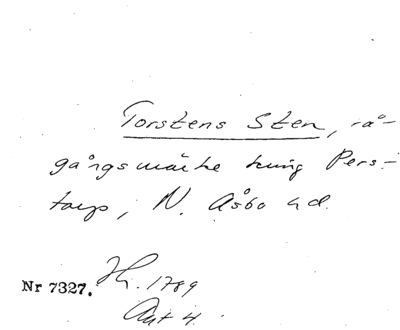 Torstens Sten, rå-
gångsmärke kring Pers-
torp, N. Åsbo hd.
Nr 7327. H. 1789
Akt 4.